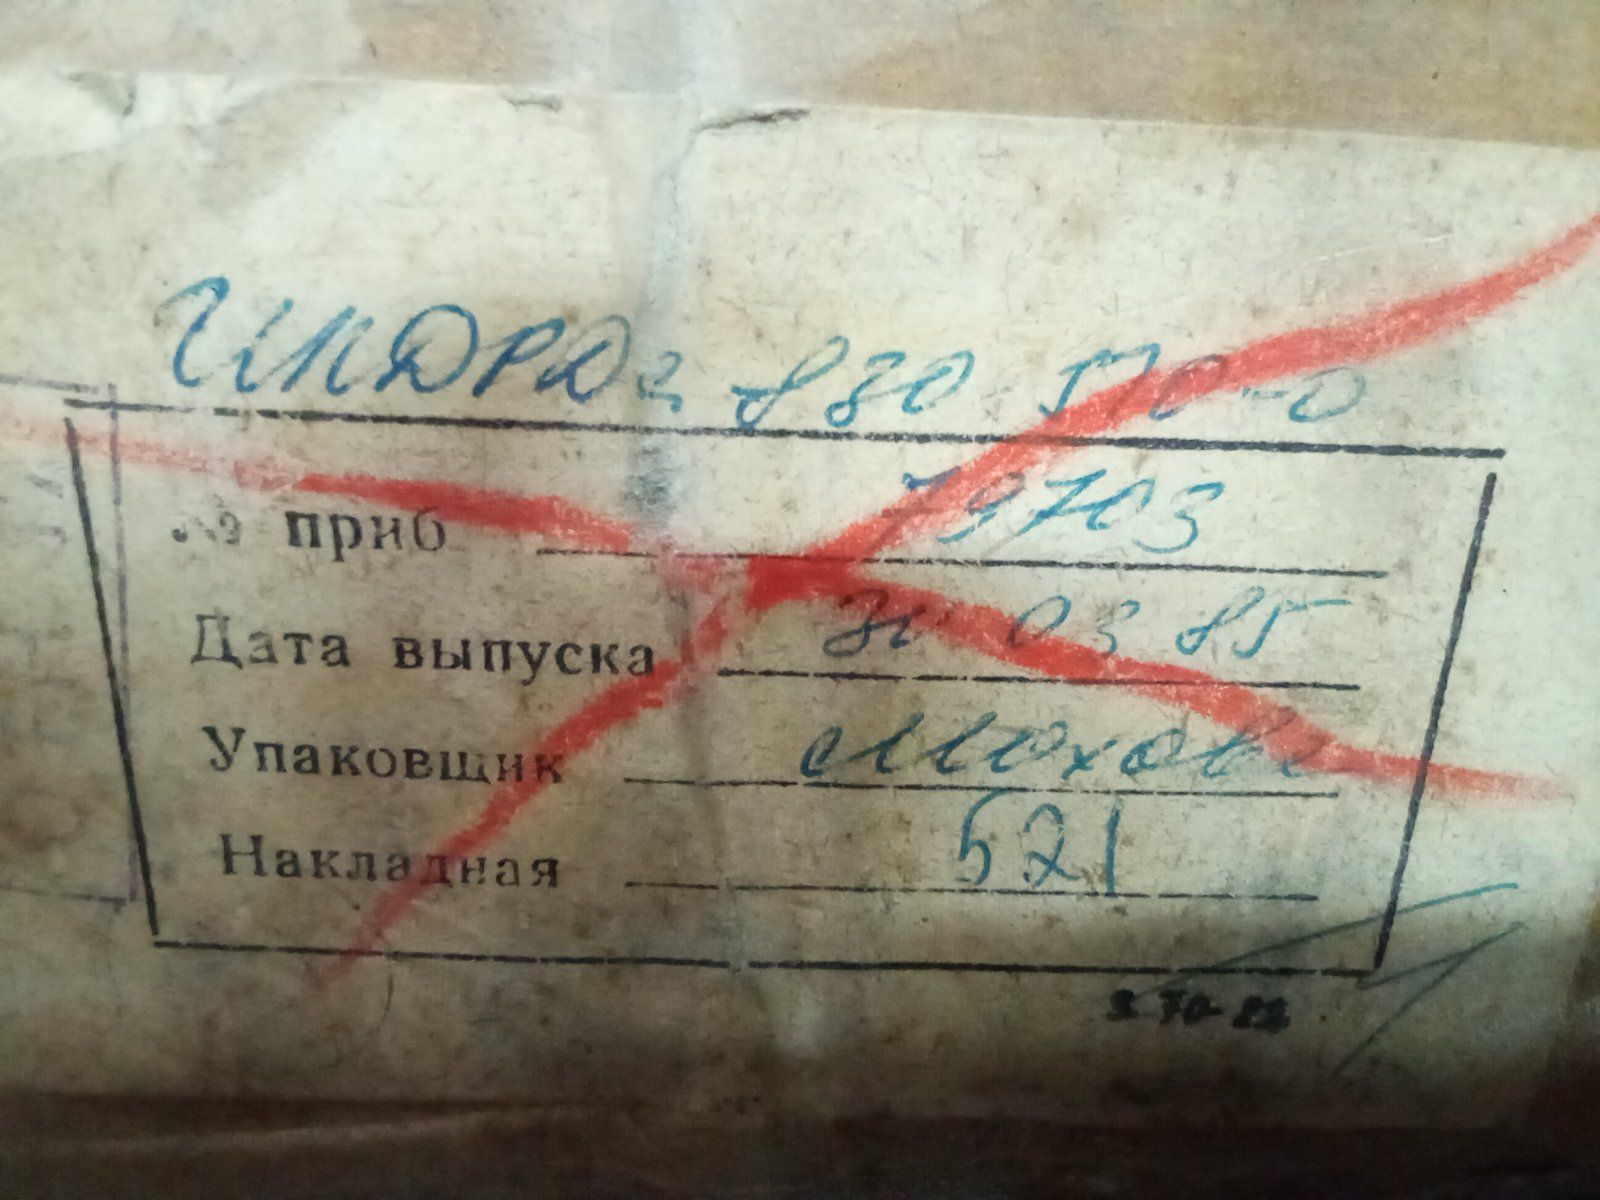 830 570-0
№ приб 79703
Дата выпуска 30 03 85
Упаковщик Мохова
Накладная 521
З 70-82